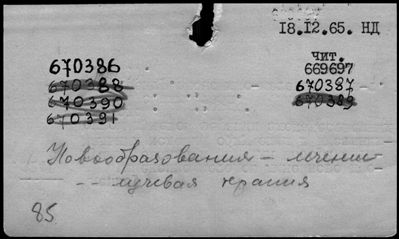 18.12.65. НД
чит.
670386
669697
670388
670387
670390
670389
670391
Новообразования – лечение
-- лучевая терапия
85